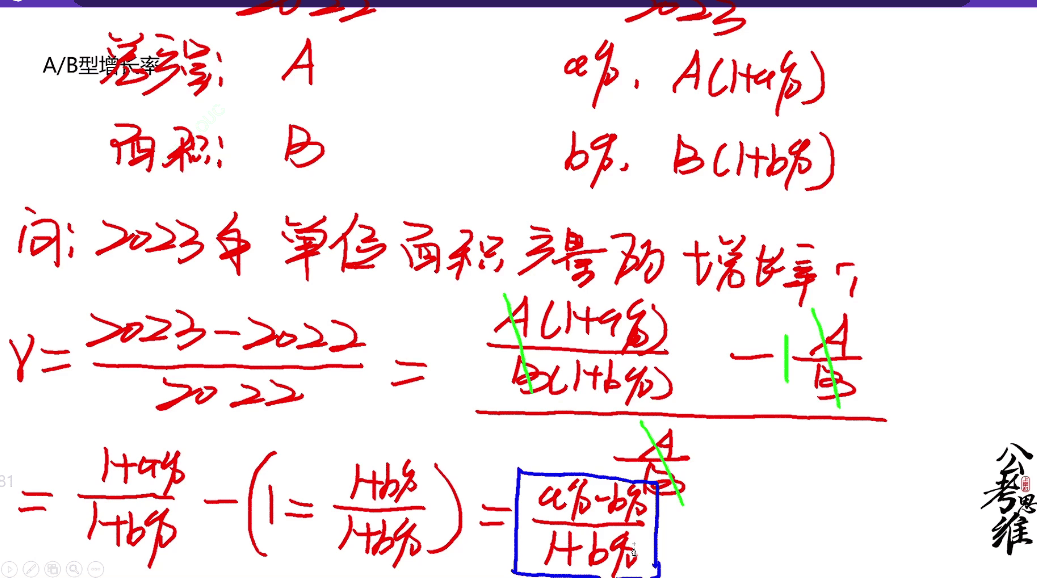 2022 2023
A/B型增长率
总产量： A a%， A(1+a%)
面积： B b%， B(1+b%)
问：2023年 单位面积产量的增长率？
r = (2023-2022)/2022 = (A(1+a%)/B(1+b%) - 1 A/B)/(A/B)
= (1+a%)/(1+b%) - (1 = (1+b%)/(1+b%)) = (a%-b%)/(1+b%)
公考思维
31